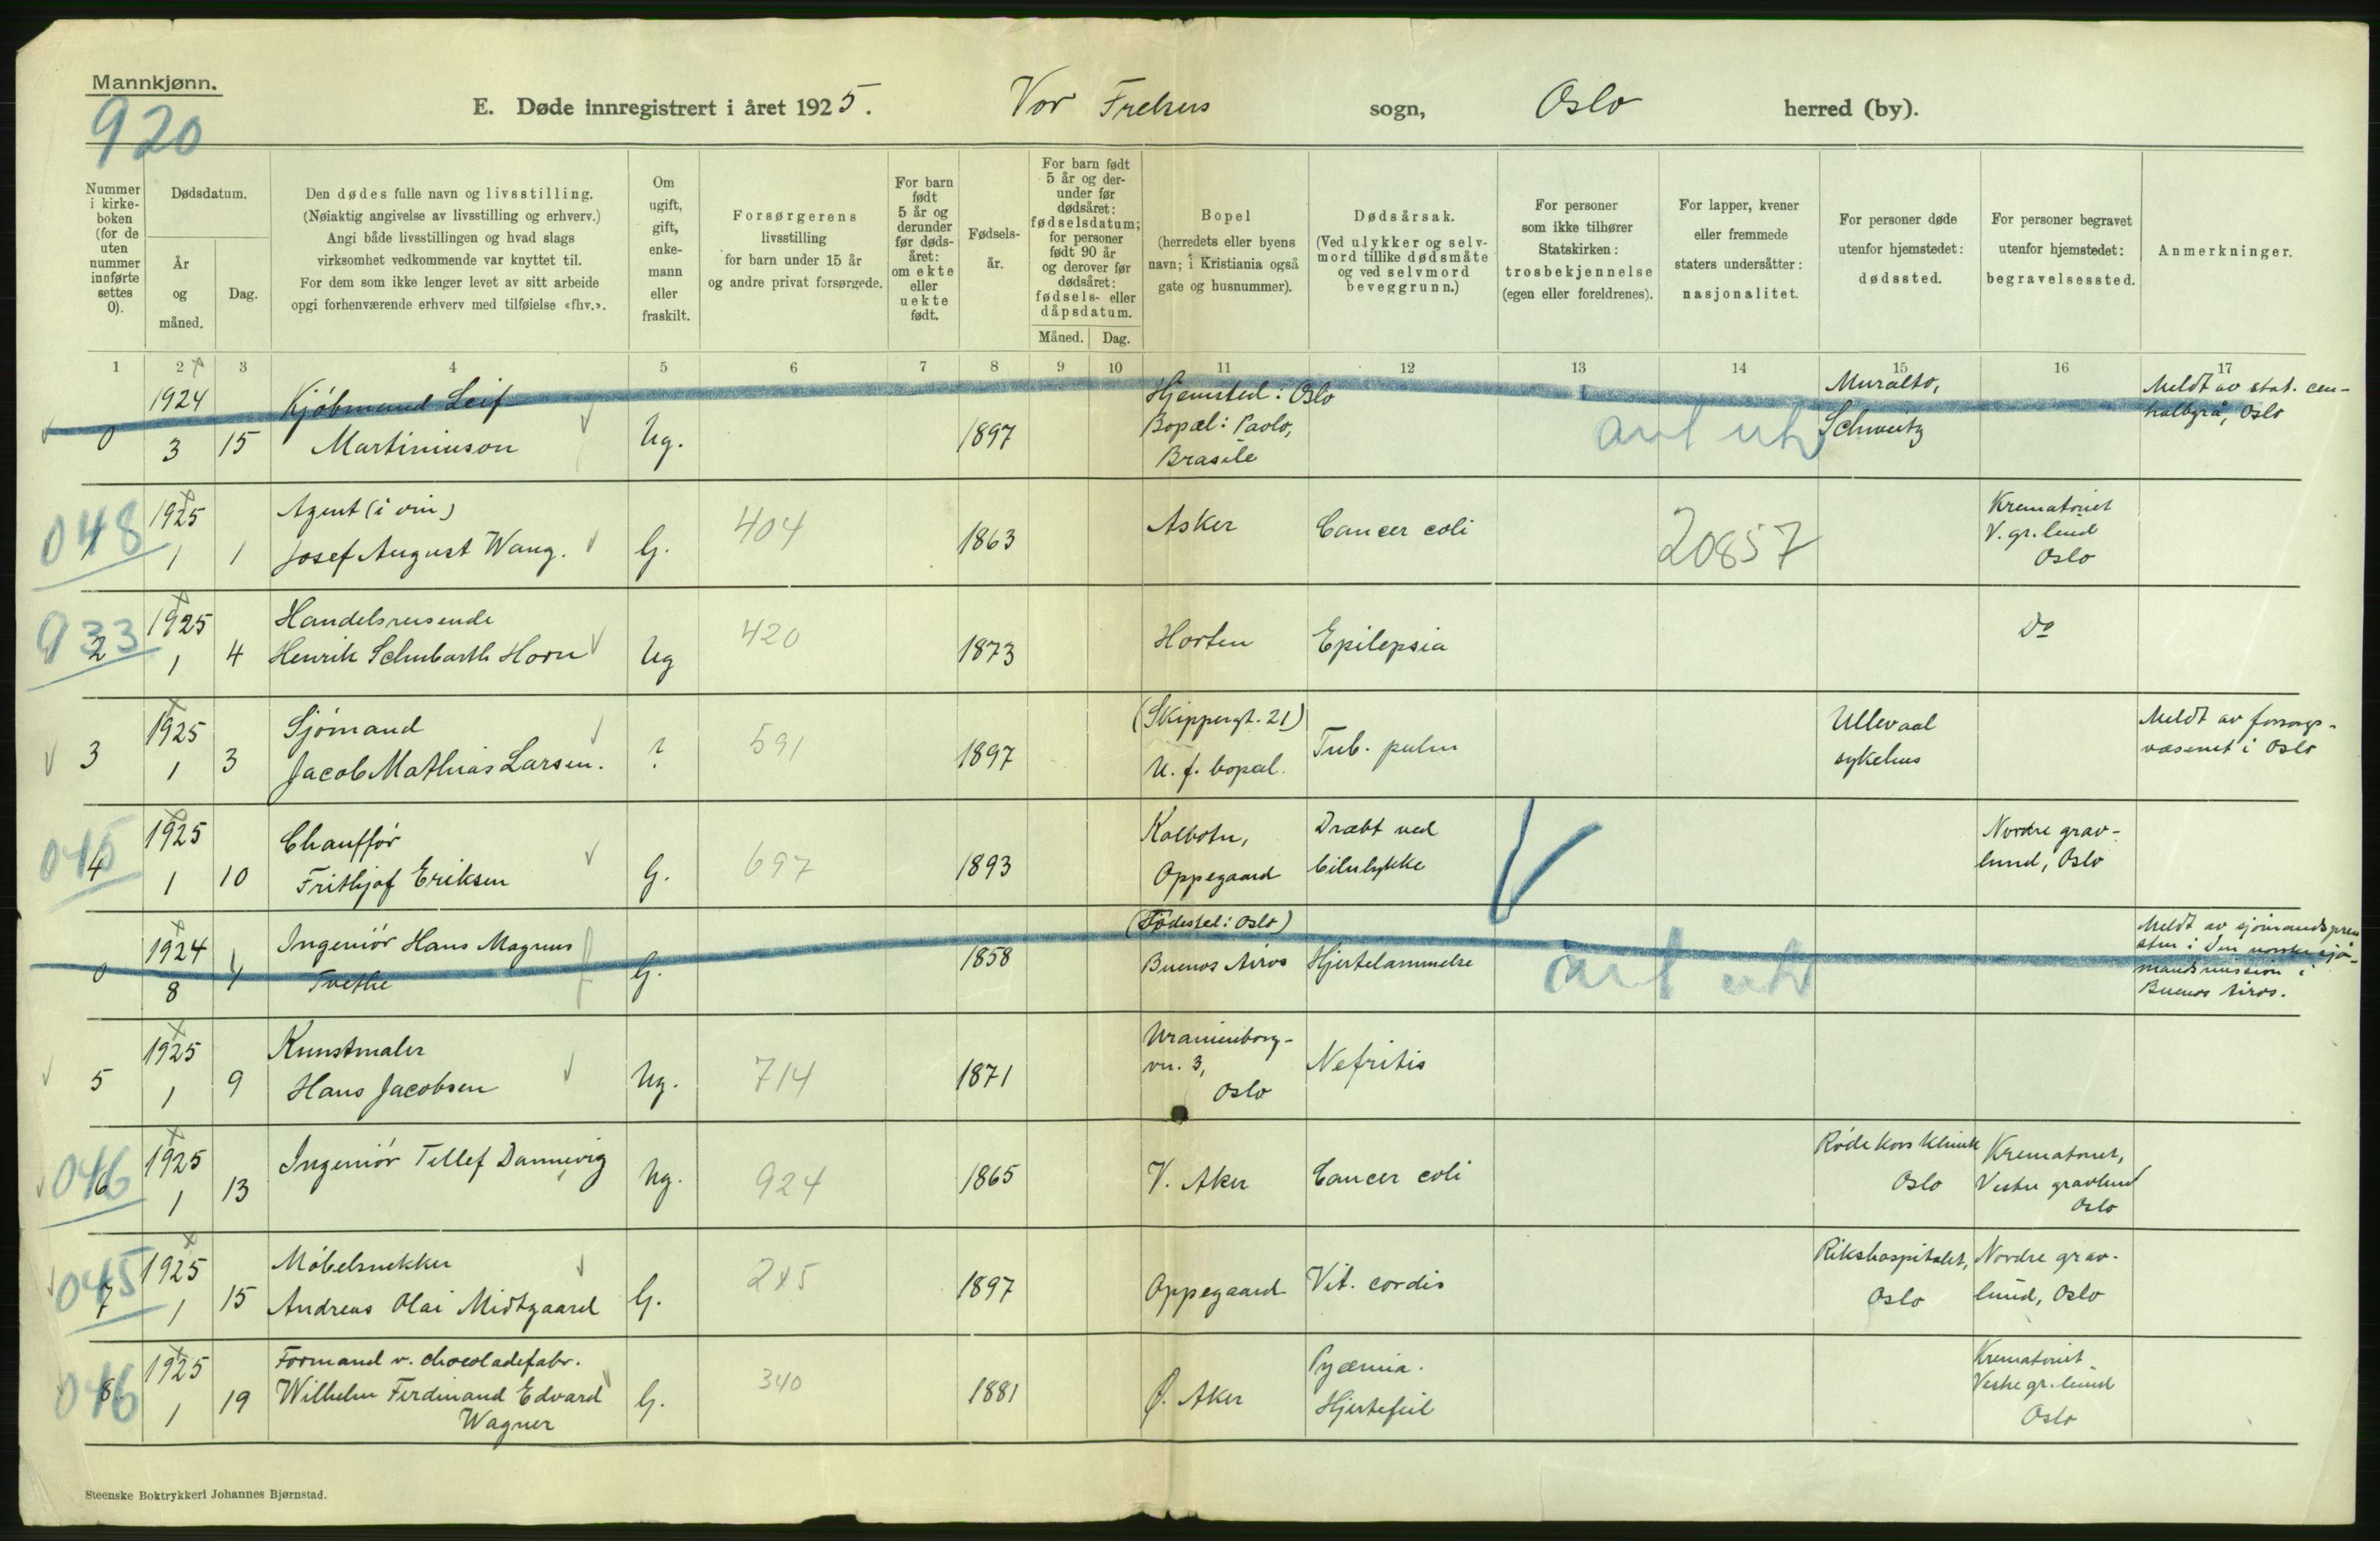 Mannkjønn.
920
E. Døde innregistrert i året 1925. Vor Frelsers sogn, Oslo herred (by).
Nummer i kirke-boken (for de uten nummer innførte settes 0).
Dødsdatum.
År og måned.
Dag.
Den dødes fulle navn og livsstilling.
(Nøiaktig angivelse av livsstilling og erhverv.)
Angi både livsstillingen og hvad slags
virksomhet vedkommende var knyttet til.
For dem som ikke lenger levet av sitt arbeide
opgi forhenværende erhverv med tilføielse «fhv.».
Om ugift, gift, enke-mann eller fraskilt.
Forsørgerens
livsstilling
for barn under 15 år
og andre privat forsørgede.
For barn født 5 år og derunder før døds-året: om ekte eller uekte født.
Fødsels-år.
For barn født 5 år og der-under før dødsåret: fødselsdatum; for personer født 90 år og derover før dødsåret: fødsels- eller dåpsdatum.
Måned. Dag.
Bopel
(herredets eller byens
navn; i Kristiania også
gate og husnummer).
Dødsårsak.
(Ved ulykker og selv-
mord tillike dødsmåte
og ved selvmord
beveggrunn.)
For personer
som ikke tilhører
Statskirken:
trosbekjennelse
(egen eller foreldrenes).
For lapper, kvener
eller fremmede
staters undersåtter:
nasjonalitet.
For personer døde
utenfor hjemstedet:
dødssted.
For personer begravet
utenfor hjemstedet:
begravelsessted.
Anmerkninger.
1 2 3 4 5 6 7 8 9 10 11 12 13 14 15 16 17
0 1924 3 15 Kjøbmand Leif
Martiniuson Ug. 1897 Hjemsted: Oslo
Bopæl: Paolo,
Brasile
Muralto,
Schweitz
Meldt av stat. cen-
tralbyrå, Oslo
048 1 1925 1 1 Agent (i vin)
Josef August Wang. G. 404 1863 Asker Cancer coli 20857 Krematoriet
V. gr.lund
Oslo
933 2 1925 1 4 Handelsreisende
Henrik Schubarth Horn Ug 420 1873 Horten Epilepsia Do
3 1925 1 3 Sjømand
Jacob Mathias Larsen. ? 591 1897 (Skippergt. 21)
U. f. bopæl. Tub. pulm Ullevaal
sykehus
Meldt av forsorgs-
væsenet i Oslo
045 4 1925 1 10 Chauffør
Frithjof Eriksen G. 697 1893 Kolbotn,
Oppegaard
Dræbt ved
bilulykke
Nordre grav-
lund, Oslo
0 1924 8 4 Ingeniør Hans Magnus
Tvethe G. 1858 (Fødested: Oslo)
Buenos Aires Hjertelammelse
Meldt av sjømandspres
sten i Den norske sjø-
mandsmission i
Buenos Aires.
5 1925 1 9 Kunstmaler
Hans Jacobsen Ug. 714 1871 Uranienborg-
vn. 3,
Oslo
Nefritis
046 6 1925 1 13 Ingeniør Tellef Dannevig Ug. 924 1865 V. Aker Cancer coli Røde Kors Klinik
Oslo
Krematoriet,
Vestre gravlund
Oslo
045 7 1925 1 15 Møbelsnekker
Andreas Olai Midtgaard G. 245 1897 Oppegaard Vit. cordis Rikshospitalet,
Oslo
Nordre grav-
lund, Oslo
046 8 1925 1 19 Formand v. chocoladefabr.
Wilhelm Ferdinand Edvard
Wagner G. 340 1881 Ø. Aker Pyæmia.
Hjertefeil
Krematoriet
Vestre gr.lund
Oslo
Steenske Boktrykkeri Johannes Bjørnstad.